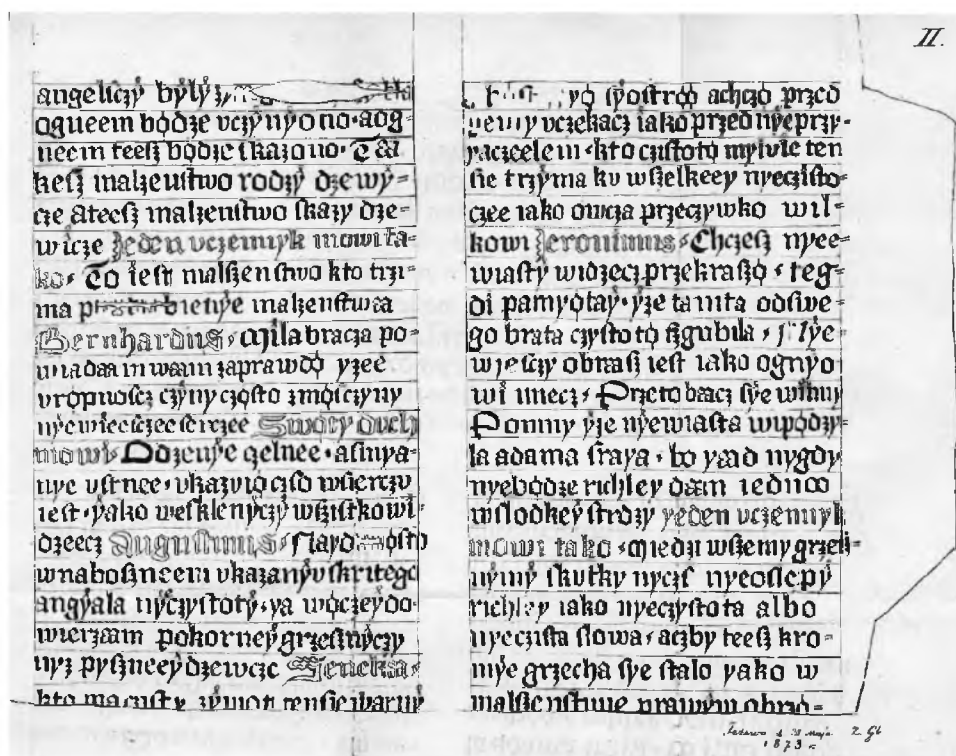 II.
angeliczÿ bÿlÿ
ogneem bǫdze vczÿnÿono · aog=
neem teesz bǫdze skazono · Tak
kesz malzenstwo rodzÿ dzewÿ=
cze ateesz malzenstwo skazy dze=
wicze Jeden vczennyk mowi ta=
ko · To iest malszenstwo kto trzi=
ma malzenstwa
Bernhardus · Mila bracza po=
wiadaam waam zaprawdǫ yzee
vrǫpnoscz czÿny czǫsto
Swǫtÿ duch
mowi Odzenÿe czelnee · asmya=
nye vstnee · vkazviǫ czso wsierczu
iest · ÿako wesklenÿczÿ wszistko wi=
dzeecz Augustinus ·
wnaboszneem vkazanÿv skritego
angÿala nÿczÿstotÿ · ya wǫczeÿ do=
wierzaam pokorneÿ grzesnÿczy
nyz pyszneeÿ dzewcze Seneka ·
kto ma czustÿ zÿwot ten sie warug
yǫ sÿostrǫǫ achczǫ przed
vczekacz iako przed nÿeprzy=
yaczeelem · kto czstotǫ mylvie ten
sie trzÿma ku wszelkeey nyeczisto=
czee iako owcza przeczywko wil=
kowi Jeronimus · Chczesz nyee=
wiastÿ widzecz przekraszǫ · teg=
di pamyǫtaÿ · ÿze tamta odswe=
go brata czystotǫ szgubila · nÿe=
wiesczy obrasz iest iako ognÿo=
wi miecz · Przeto bacz sÿe winny
Pommy ÿze nÿewiasta wipǫdzy=
la adama sraya · bo yaad nygdy
nyebǫdze richley daam iednoo
wslodkeÿ strdzÿ yeden vczennyk
mowi tako · Medzi wszemy grzesz=
nÿmÿ skutky nycz nyeoslepÿ
richley iako nyeczystota albo
nyeczista slowa · aczby teesz kro=
mÿe grzecha sÿe stalo yako w
malszenstwie prawÿm obrzǫ=
1873